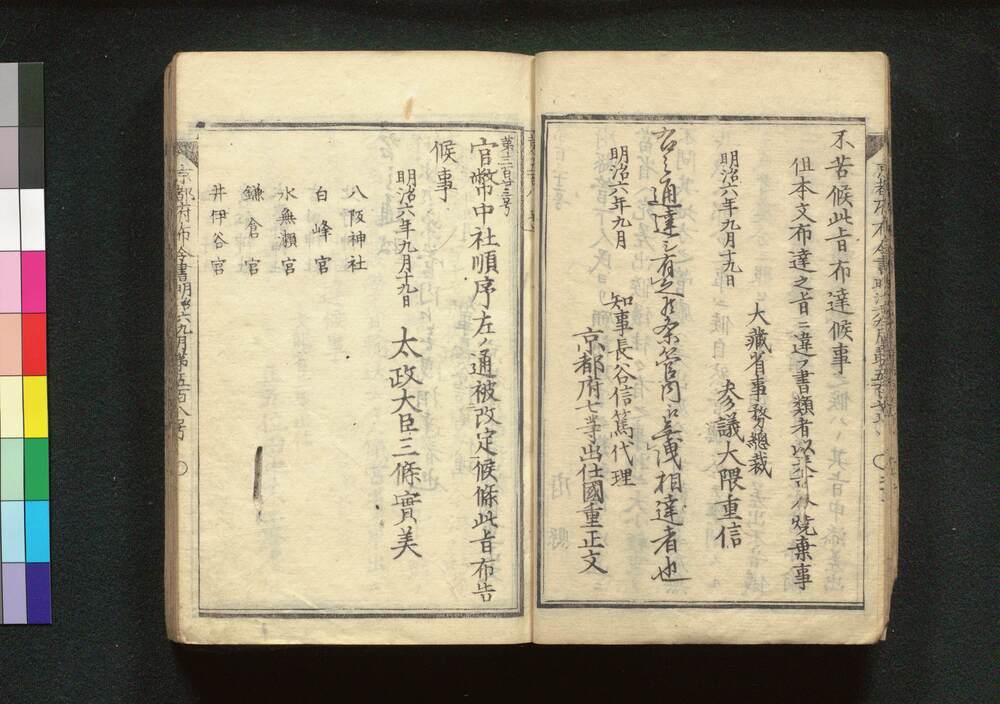 不苦候此旨布達候事
但本文布達之旨ニ違フ書類者
焼棄事
明治六年九月十九日
大藏省事務總裁
参議大隈重信
右之通達シ有之候条管内無洩相達者也
明治六年九月
知事長谷信篤代理
京都府七等出仕國重正文
第三百廿三号
官幣中社順序左ノ通被改定候條此旨布告
候事
明治六年九月十九日
太政大臣三條實美
八阪神社
白峰宮
水無瀬宮
鎌倉宮
井伊谷宮
京都府布令書明治六年九月第五百八号